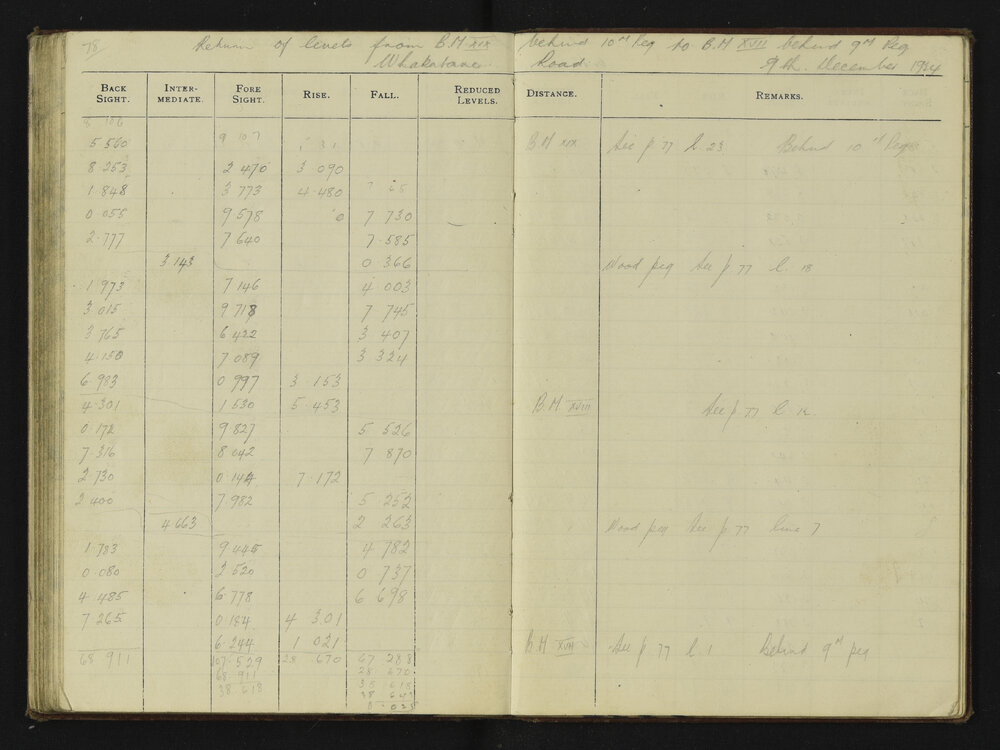 78 Return of levels from B.M XIX behind 10 M Peg to B.M XVIII behind 9M Peg
Whakatane Road 9th. December 1924
BACK SIGHT. INTER-MEDIATE. FORE SIGHT. RISE. FALL. REDUCED LEVELS. DISTANCE. REMARKS.
8 106
5 560 9 107 B.M XIX See p 77 l. 23 Behind 10 M Peg
8 253 2 470 3 090
1 848 3 773 4 480
0 055 9 578 7 730
2.777 7 640 7 585
3 143 0 366 Wood peg See p 77 l. 18
1 973 7 146 4 003
3 015 9 718 7 745
3 765 6 422 3 407
4 150 7 089 3 324
6.983 0 997 3 153
4.301 1 530 5.453 B.M XVIII See p 77 l. 12
0 172 9 827 5 526
7.316 8 042 7 870
2.730 0.144 7.172
2 400 7 982 5 252
4 663 2 263 Wood peg See p 77 line 7
1.783 9 445 4 782
0 080 2 520 0 737
4.485 6 778 6 698
7.265 0.184 4 301
6.244 1 021 B.M XVII See p 77 l. 1 Behind 9M peg
68 911 107.529 28 670 67 288
68 911 28 670
38.618 38 618